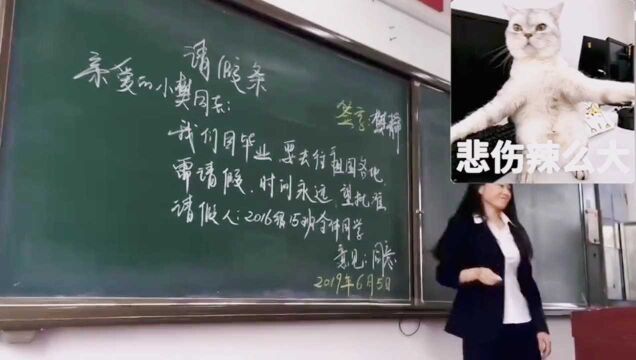 请假条
亲爱的小樊同志:
我们因毕业,要去往祖国各地,
需请假,时间永远,望批准
请假人:2016级15班全体同学
签字:樊静
意见:同意
2019年6月5日
悲伤辣么大